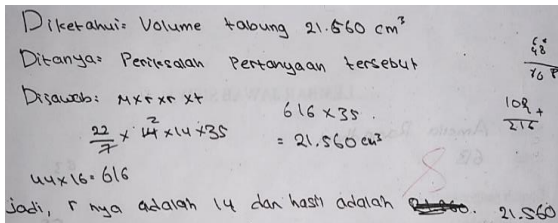 Diketahui: Volume tabung 21.560 cm³
Ditanya: Periksalah Pertanyaan tersebut
Dijawab: π x r x r x t
22/7 x 14 x 14 x 35
2
616 x 35
= 21.560 cm³
44 x 16 = 616
Jadi, r nya adalah 14 dan hasil adalah 21.560
108 +
216
8